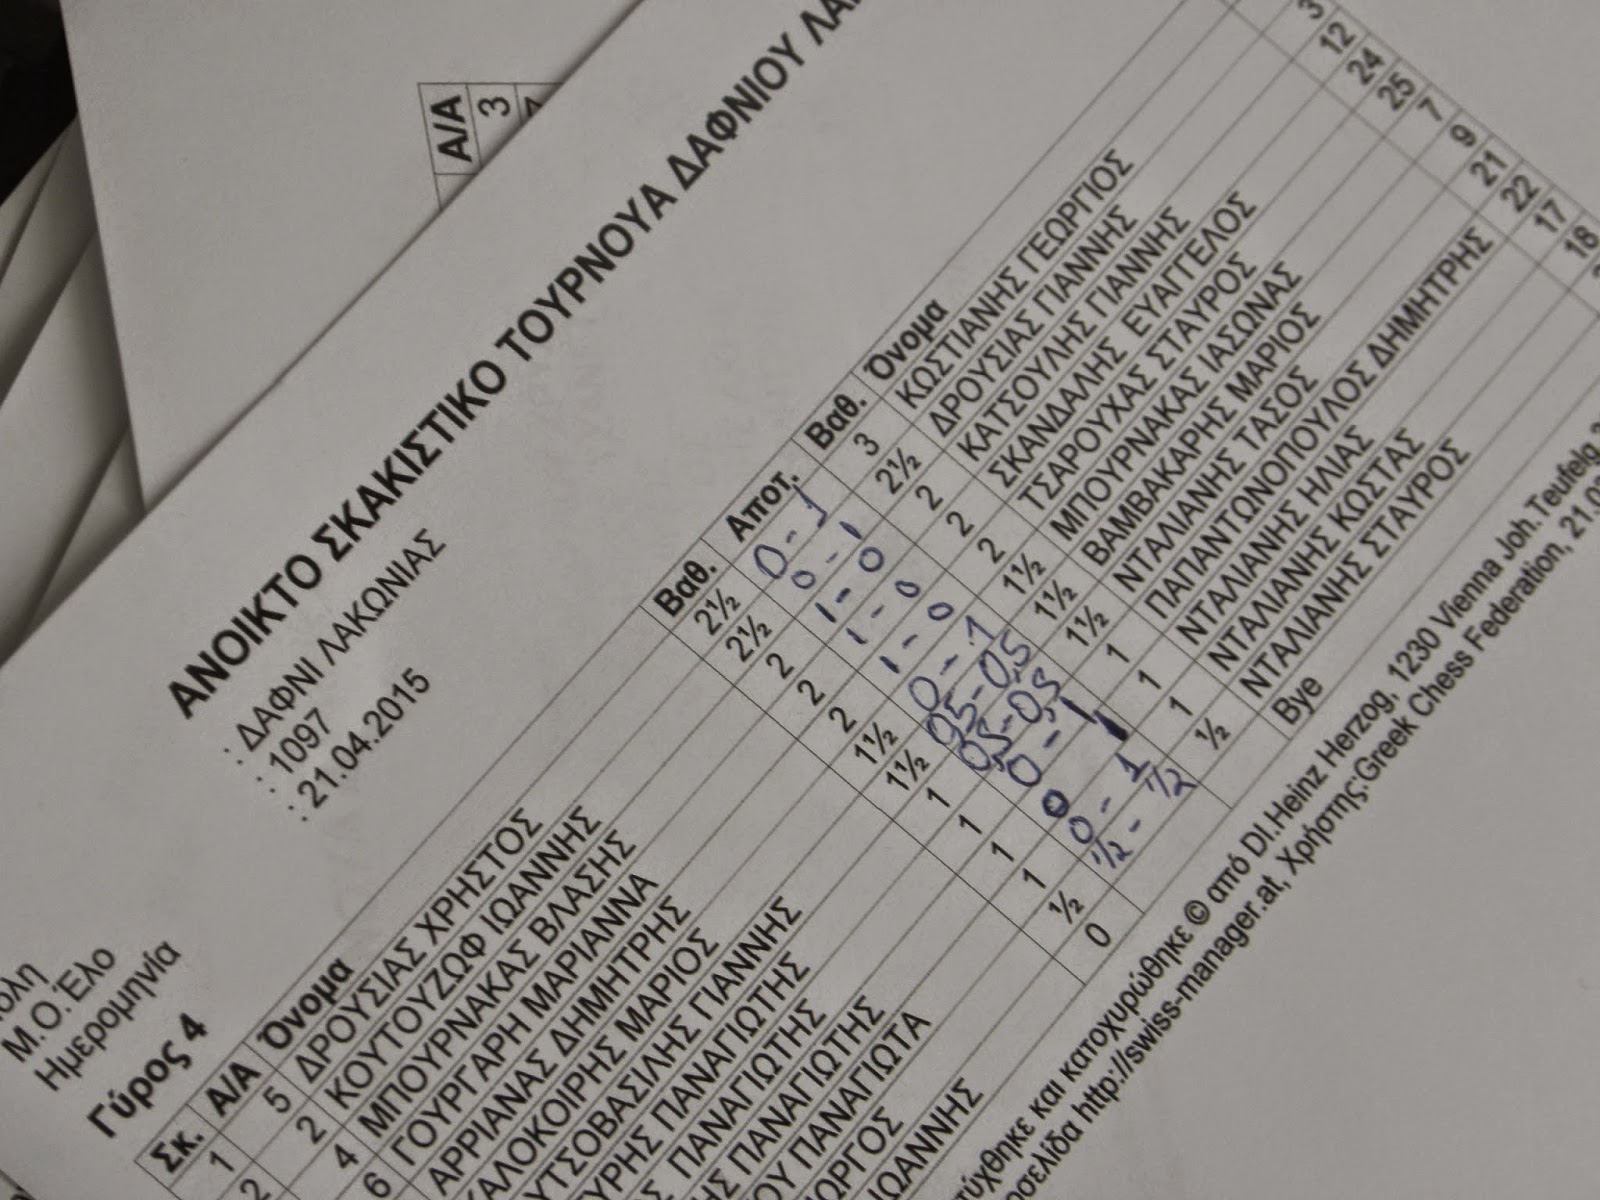 Α/Α
3
ΑΝΟΙΚΤΟ ΣΚΑΚΙΣΤΙΚΟ ΤΟΥΡΝΟΥΑ ΔΑΦΝΙΟΥ ΛΑΚ
: ΔΑΦΝΙ ΛΑΚΩΝΙΑΣ
Μ.Ο. Έλο : 1097
Ημερομηνία : 21.04.2015
Γύρος 4
Σκ. Α/Α Όνομα Βαθ. Αποτ. Βαθ. Όνομα
1 5 ΔΡΟΥΣΙΑΣ ΧΡΗΣΤΟΣ 2½ 0-1 3 ΚΩΣΤΙΑΝΗΣ ΓΕΩΡΓΙΟΣ 3
2 2 ΚΟΥΤΟΥΖΩΦ ΙΩΑΝΝΗΣ 2½ 0-1 2½ ΔΡΟΥΣΙΑΣ ΓΙΑΝΝΗΣ 12
4 ΜΠΟΥΡΝΑΚΑΣ ΒΛΑΣΗΣ 2 1-0 2 ΚΑΤΣΟΥΛΗΣ ΓΙΑΝΝΗΣ 24
6 ΓΟΥΡΓΑΡΗ ΜΑΡΙΑΝΝΑ 2 1-0 2 ΣΚΑΝΔΑΛΗΣ ΕΥΑΓΓΕΛΟΣ 25
ΑΡΡΙΑΝΑΣ ΔΗΜΗΤΡΗΣ 2 1-0 2 ΤΣΑΡΟΥΧΑΣ ΣΤΑΥΡΟΣ 7
ΑΛΟΚΟΙΡΗΣ ΜΑΡΙΟΣ 1½ 0-1 1½ ΜΠΟΥΡΝΑΚΑΣ ΙΑΣΩΝΑΣ 9
ΥΤΣΟΒΑΣΙΛΗΣ ΓΙΑΝΝΗΣ 1½ 0,5-0,5 1½ ΒΑΜΒΑΚΑΡΗΣ ΜΑΡΙΟΣ 21
ΥΡΗΣ ΠΑΝΑΓΙΩΤΗΣ 1 0,5-0,5 1½ ΝΤΑΛΙΑΝΗΣ ΤΑΣΟΣ 22
ΠΑΝΑΓΙΩΤΗΣ 1 0-1 1 ΠΑΠΑΝΤΩΝΟΠΟΥΛΟΣ ΔΗΜΗΤΡΗΣ 17
ΠΑΝΑΓΙΩΤΗΣ 1 0 1 1 ΝΤΑΛΙΑΝΗΣ ΗΛΙΑΣ 18
ΟΥ ΠΑΝΑΓΙΩΤΑ 1 0-1 1 ΝΤΑΛΙΑΝΗΣ ΚΩΣΤΑΣ
ΩΡΓΟΣ ½ 1/2-1/2 ½ ΝΤΑΛΙΑΝΗΣ ΣΤΑΥΡΟΣ
ΙΩΑΝΝΗΣ 0 Bye
τύχθηκε και κατοχυρώθηκε © από DI.Heinz Herzog, 1230 Vienna Joh.Teufelg.
οσελίδα http://swiss-manager.at, Χρήστης:Greek Chess Federation, 21.0